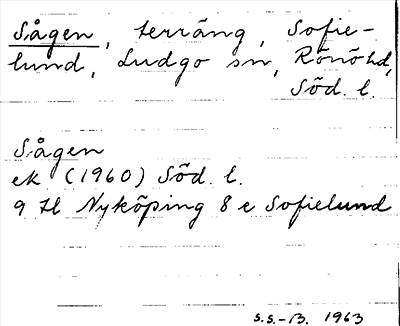 Sågen, terräng, Sofie-
lund, Ludgo sn, Rönö hd,
Söd. l.
Sågen
ek (1960) Söd. l.
9 H Nyköping 8 e Sofielund
S.S.-B. 1963